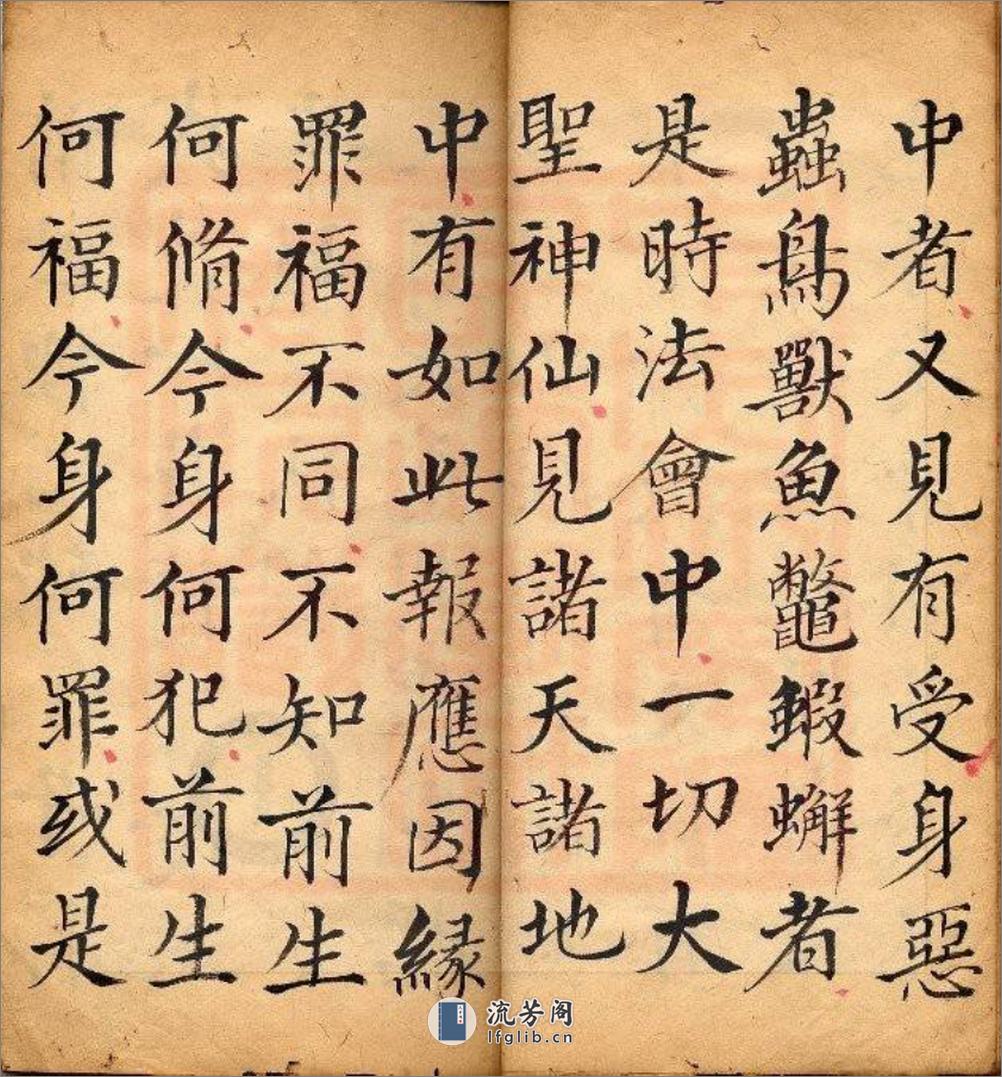 中者又見有受身惡
蟲鳥獸魚鼈鰕蠏者
是時法會中一切大
聖神仙見諸天諸地
中有如此報應因緣
罪福不同不知前生
何脩今身何犯前生
何福今身何罪或是
流芳阁
lfglib.cn